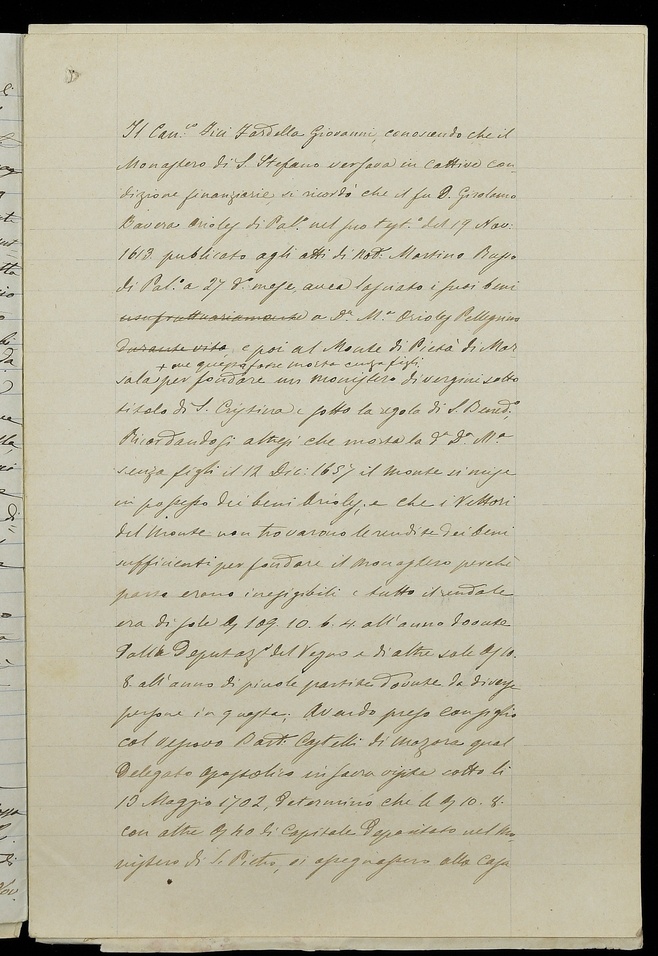 Il Can.co Pici Fardella Giovanni, conoscendo che il
Monastero di S. Stefano versava in cattive con
dizione finanziarie si ricordò che il fu D. Girolamo
Bavera Orioles di Pal.o nel suo test.o del 19 Nov:
1613. publicato agli atti di Not. Martino Russo
di Pal.o a 27 d.o mese, avea lasciato i suoi beni
usufruttuariamente a D.a M.a Orioles Pellegrino
durante vita, e poi al Monte di Pietà di Mar
+ ove questa fosse morta senza figli
sala per fondare un monistero di vergini sotto
titolo di S. Cristina e sotto la regola di S. Bened.o
Ricordandosi altresì che morta la d.a D.a M.a
senza figli il 12 Dic: 1657 il monte si mise
in possesso dei beni Orioles, e che i Rettori
del Monte non trovarono le rendite dei beni
sufficienti per fondare il monastero perchè
parte erano inesigibili e tutto il rendale
era di sole 109. 10. 6. 4. all'anno dovute
dalla Deputaz.e del Regno e di altre sole 10.
8. all'anno di picole partite dovute da diverse
persone in questa; Avendo preso consiglio
col vescovo Bart. Castelli di Mazara qual
Delegato apostolico in sacra visita sotto li
13 Maggio 1702, determinò che le 10. 8.
con altre 40 di Capitale depositato nel Mo,
nistero di S. Pietro, si assegnassero alla Casa